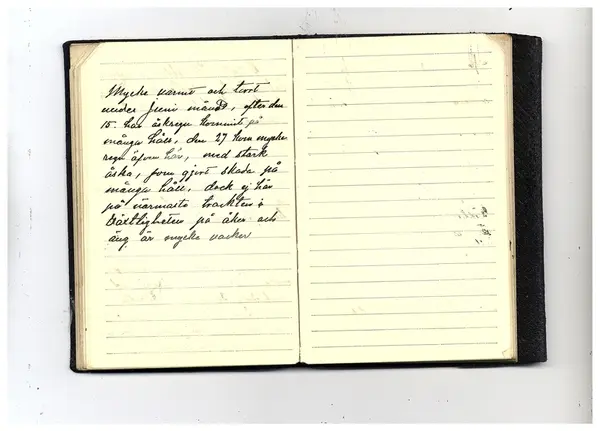 Mycke varmt och torrt
under Juni månad. efter den
15. har åskregn kommit på
många håll, den 27 kom mycke
regn äfven här, med stark
åska, som gjort skada på
många håll, dock ej här
på närmaste trakten;
Växtligheten på åker och
äng är mycke vacker